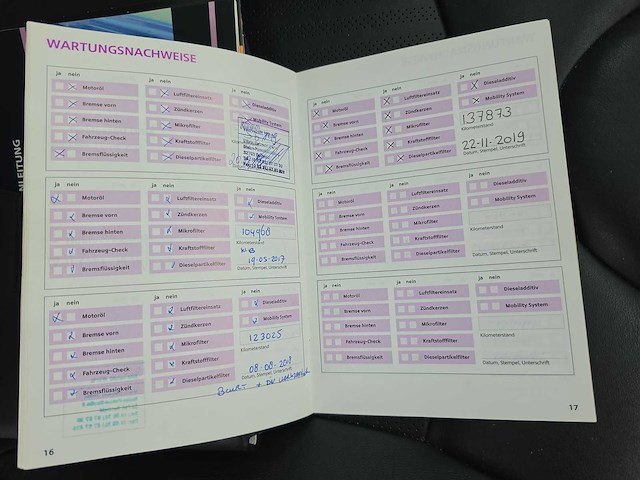 NLEITUNG
WARTUNGSNACHWEISE
ja nein
ja nein
ja nein
Motoröl
Luftfiltereinsatz
Dieseladditiv
Bremse vorn
Zündkerzen
Mobility System
Bremse hinten
Mikrofilter
Fahrzeug-Check
Kraftstofffilter
Bremsflüssigkeit
Dieselpartikelfilter
ja nein
ja nein
ja nein
Motoröl
Luftfiltereinsatz
Dieseladditiv
Bremse vorn
Zündkerzen
Mobility System
Bremse hinten
Mikrofilter
104968
Kilometerstand
Fahrzeug-Check
Kraftstofffilter
19-05-2017
Bremsflüssigkeit
Dieselpartikelfilter
Datum, Stempel, Unterschrift
ja nein
ja nein
ja nein
Motoröl
Luftfiltereinsatz
Dieseladditiv
Bremse vorn
Zündkerzen
Mobility System
Bremse hinten
Mikrofilter
123025
Kilometerstand
Fahrzeug-Check
Kraftstofffilter
08-08-2018
Bremsflüssigkeit
Dieselpartikelfilter
Datum, Stempel, Unterschrift
16
ja nein
ja nein
ja nein
Motoröl
Luftfiltereinsatz
Dieseladditiv
Bremse vorn
Zündkerzen
Mobility System
Bremse hinten
Mikrofilter
137873
Kilometerstand
Fahrzeug-Check
Kraftstofffilter
22-11-2019
Bremsflüssigkeit
Dieselpartikelfilter
Datum, Stempel, Unterschrift
ja nein
ja nein
ja nein
Motoröl
Luftfiltereinsatz
Dieseladditiv
Bremse vorn
Zündkerzen
Mobility System
Bremse hinten
Mikrofilter
Kilometerstand
Fahrzeug-Check
Kraftstofffilter
Bremsflüssigkeit
Dieselpartikelfilter
Datum, Stempel, Unterschrift
ja nein
ja nein
ja nein
Motoröl
Luftfiltereinsatz
Dieseladditiv
Bremse vorn
Zündkerzen
Mobility System
Bremse hinten
Mikrofilter
Kilometerstand
Fahrzeug-Check
Kraftstofffilter
Bremsflüssigkeit
Dieselpartikelfilter
Datum, Stempel, Unterschrift
17